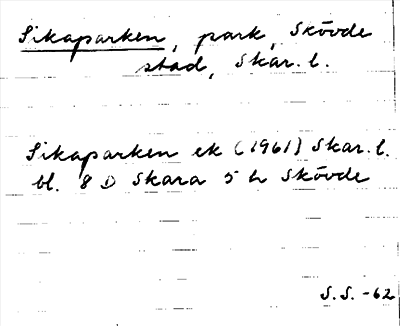 Sikaparken, park, Skövde
stad, Skar. l.
Sikaparken ek (1961) Skar. l.
bl. 8 D Skara 5 h Skövde
S.S. -62